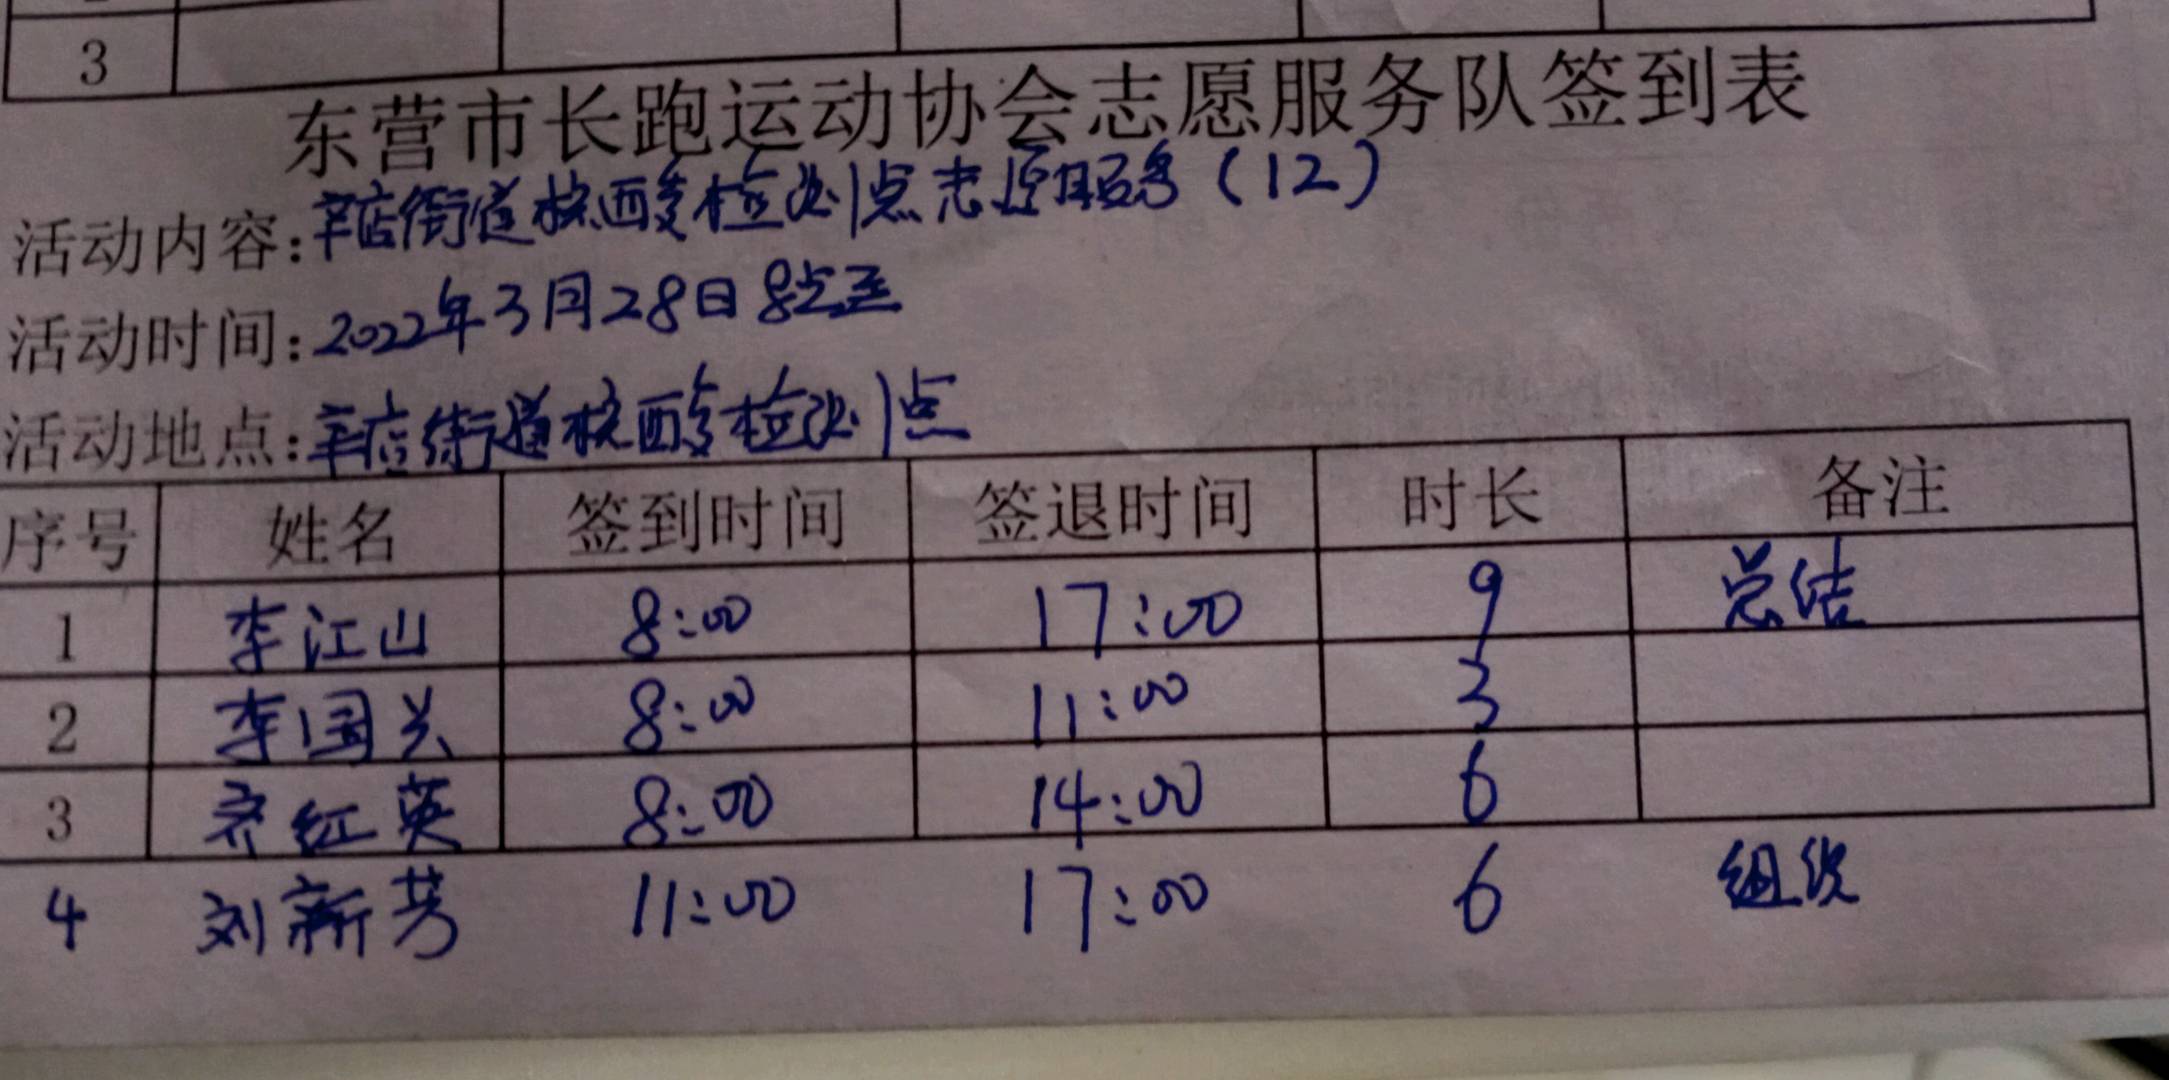 3
东营市长跑运动协会志愿服务队签到表
活动内容:辛店街道核酸检测点志愿服务(12)
活动时间:2022年3月28日8点至
活动地点:辛店街道核酸检测点
序号 姓名 签到时间 签退时间 时长 备注
1 李江山 8:00 17:00 9 总结
2 李国兴 8:00 11:00 3
3 齐红英 8:00 14:00 6
4 刘新芳 11:00 17:00 6 组织